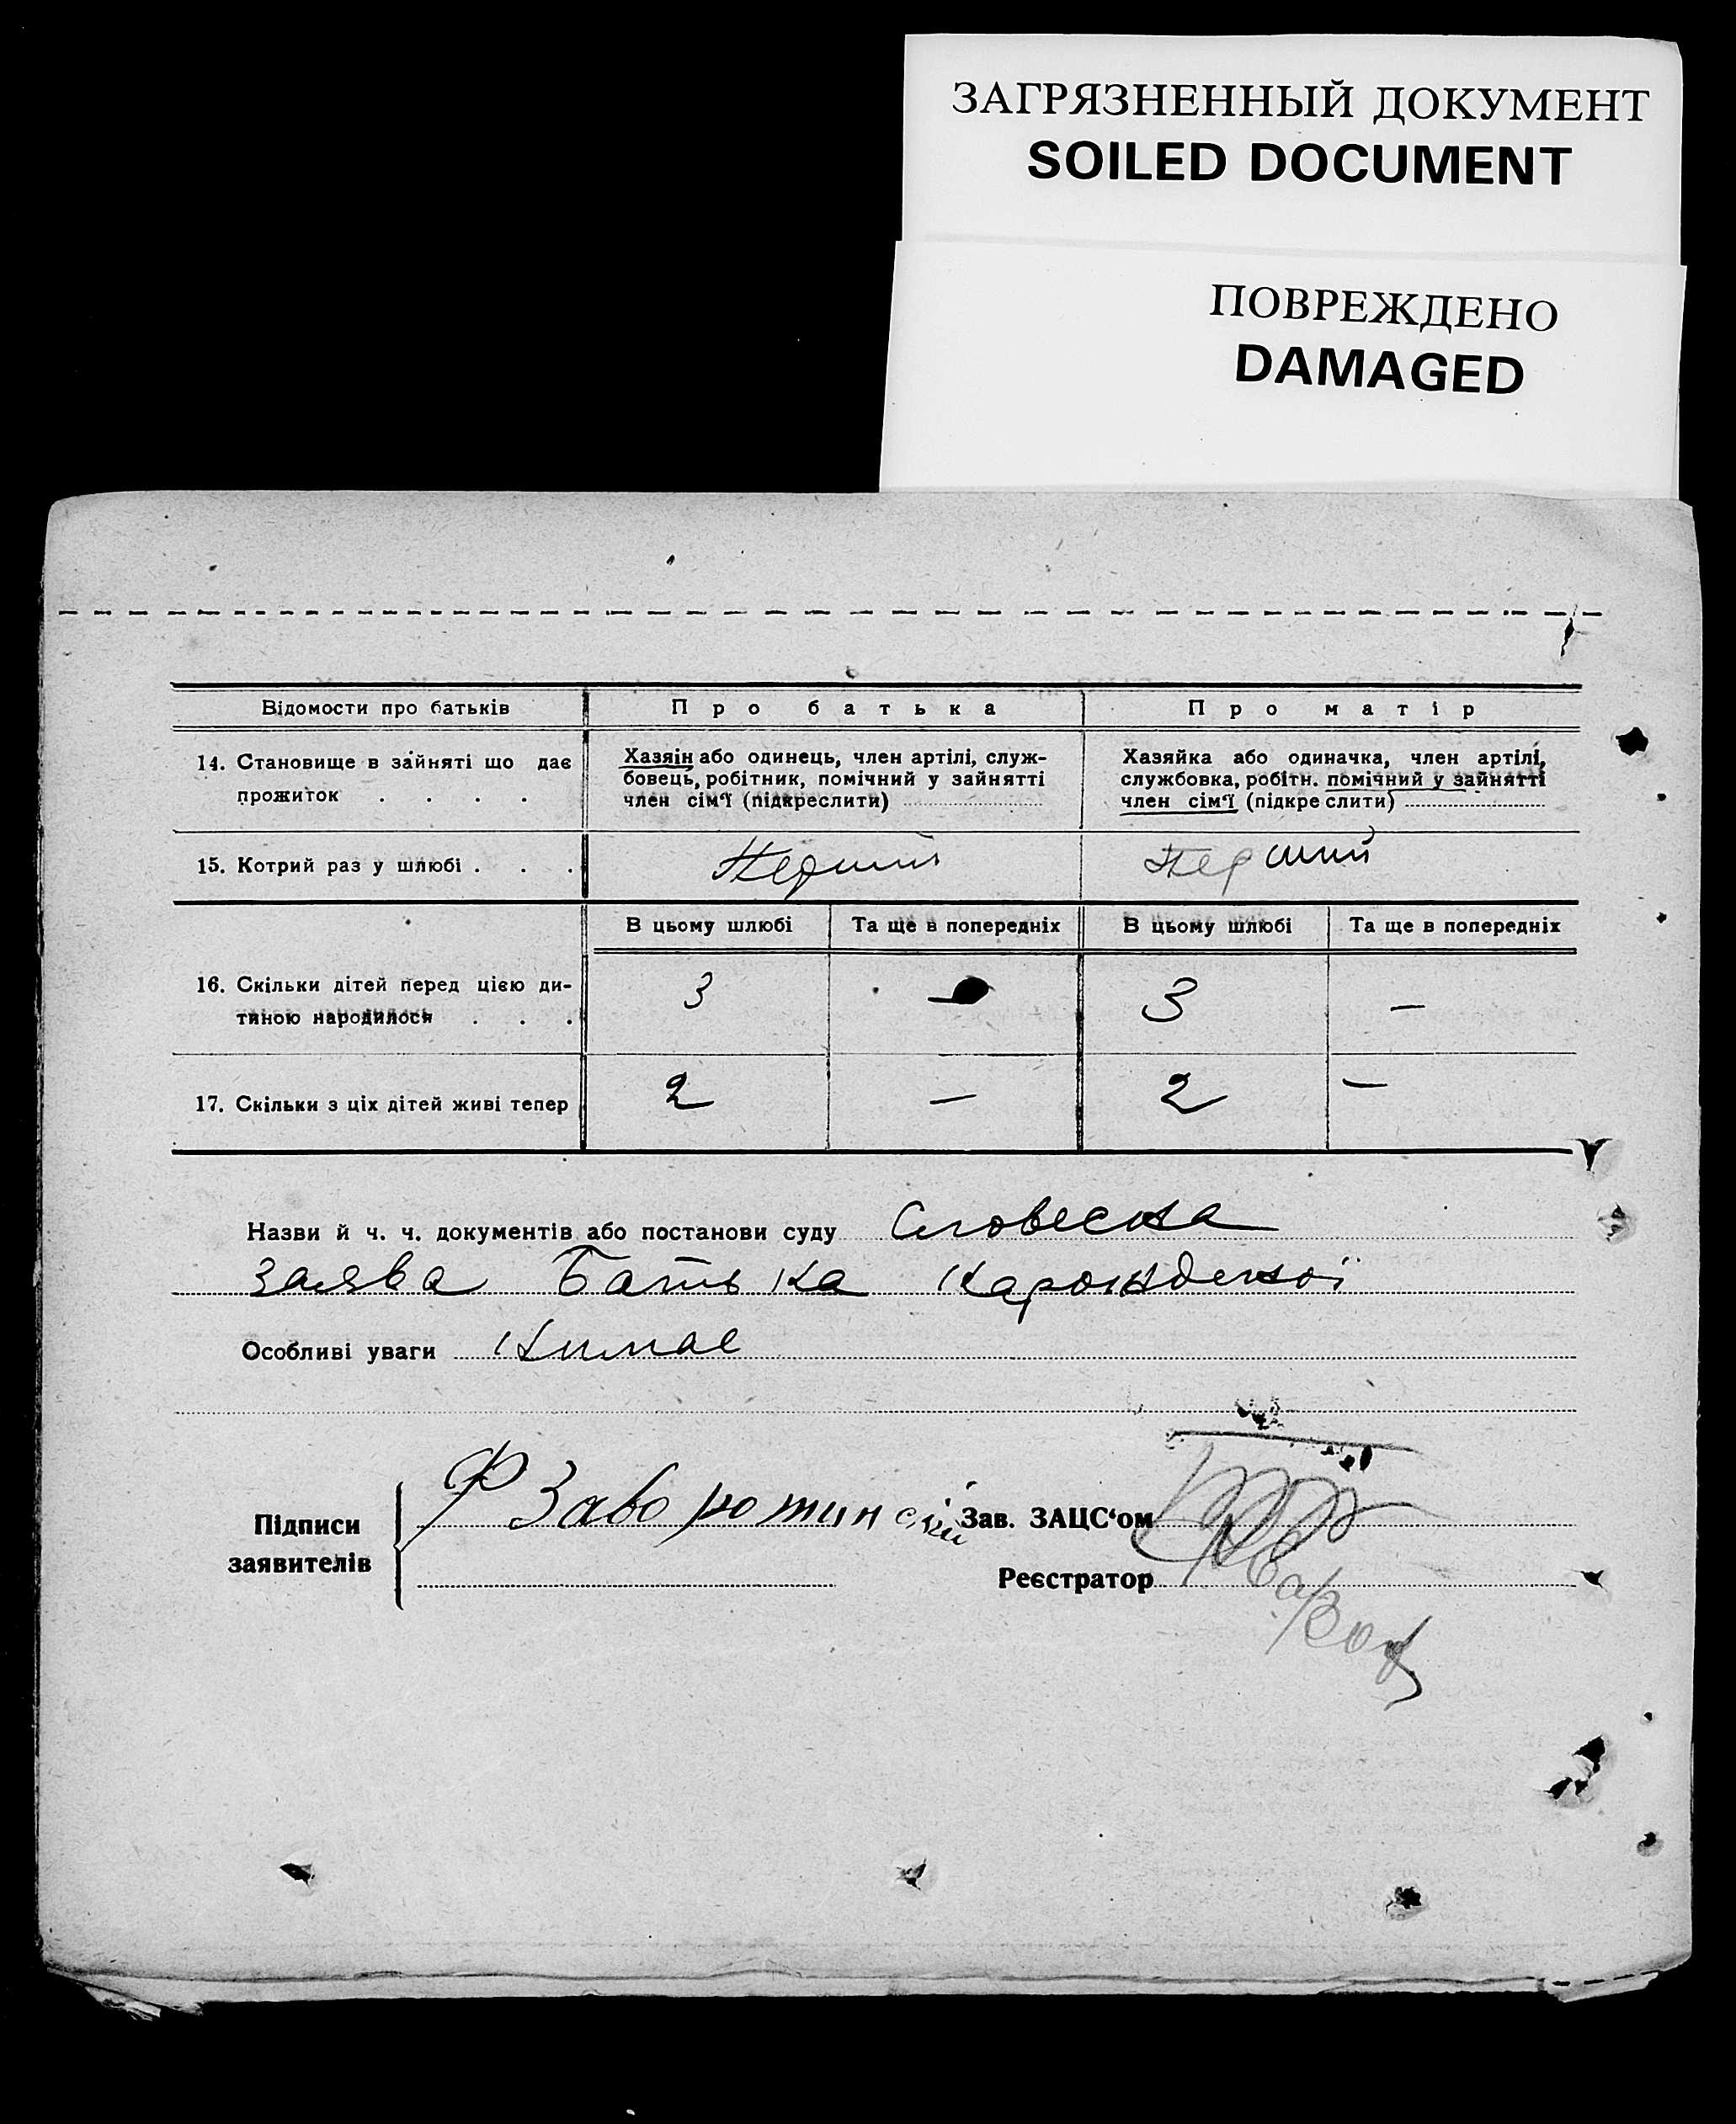 ЗАГРЯЗНЕННЫЙ ДОКУМЕНТ
SOILED DOCUMENT
ПОВРЕЖДЕНО
DAMAGED
Відомости про батьків
Про батька
Про матір
14. Становище в зайняті що дає
прожиток . . . .
Хазяін або одинець, член артілі, служ-
бовець, робітник, помічний у зайнятті
член сім'ї (підкреслити)
Хазяйка або одиначка, член артілі,
службовка, робітн. помічний у зайнятті
член сім'ї (підкреслити)
15. Котрий раз у шлюбі . . .
Перший
Перший
В цьому шлюбі
Та ще в попередніх
В цьому шлюбі
Та ще в попередніх
16. Скільки дітей перед цією ди-
тиною народилося . . .
3
—
3
—
17. Скільки з ціх дітей живі тепер
2
—
2
—
Назви й ч. ч. документів або постанови суду Словесна
заява Батька народженої
Особливі уваги Нимае
Підписи
заявителів
Ф Заворотинский
Зав. ЗАЦС'ом
Реєстратор